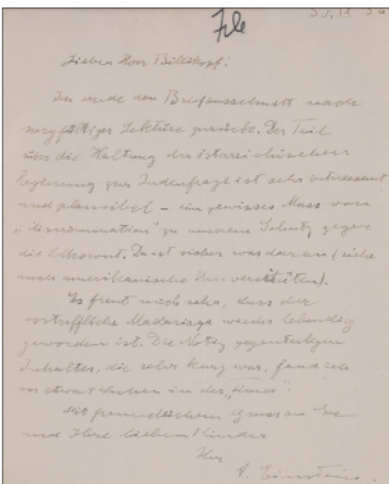 File
30. XI. 36
Lieber Herr Billikopf!
Ich sende den Briefausschnitt nach
sorgfältiger Lektüre zurück. Der Teil
über die Haltung der österreichischen
Regierung zur Judenfrage ist sehr interessant
und plausibel – ein gewisses Mass von
„discrimination" zu unserem Schutz gegen
die Volkswut. Da ist sicher was daran (siehe
auch amerikanische Universitäten).
Es freut mich sehr, dass der
vortreffliche Madariaga wieder lebendig
geworden ist. Die Notiz gegenteiligen
Inhaltes, die sehr kurz war, fand ich
vor etwa 4 Wochen in der „Times".
Mit freundlichem Gruss an Sie
und Ihre lieben Kinder
Ihr
A. Einstein.